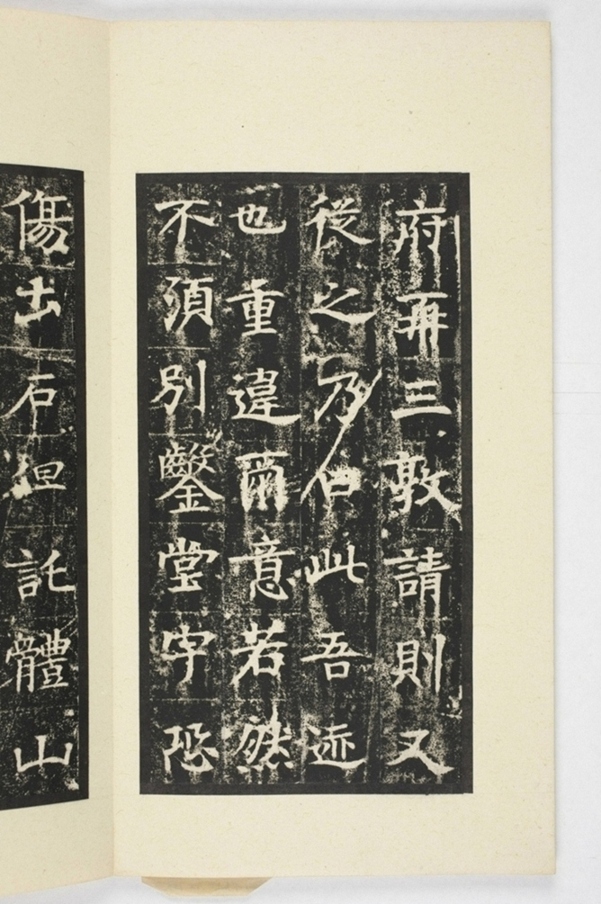 府再三敦請則又
從之乃曰此吾迹
也重違爾意若然
不須別鑿堂宇恐
傷土石但託體山